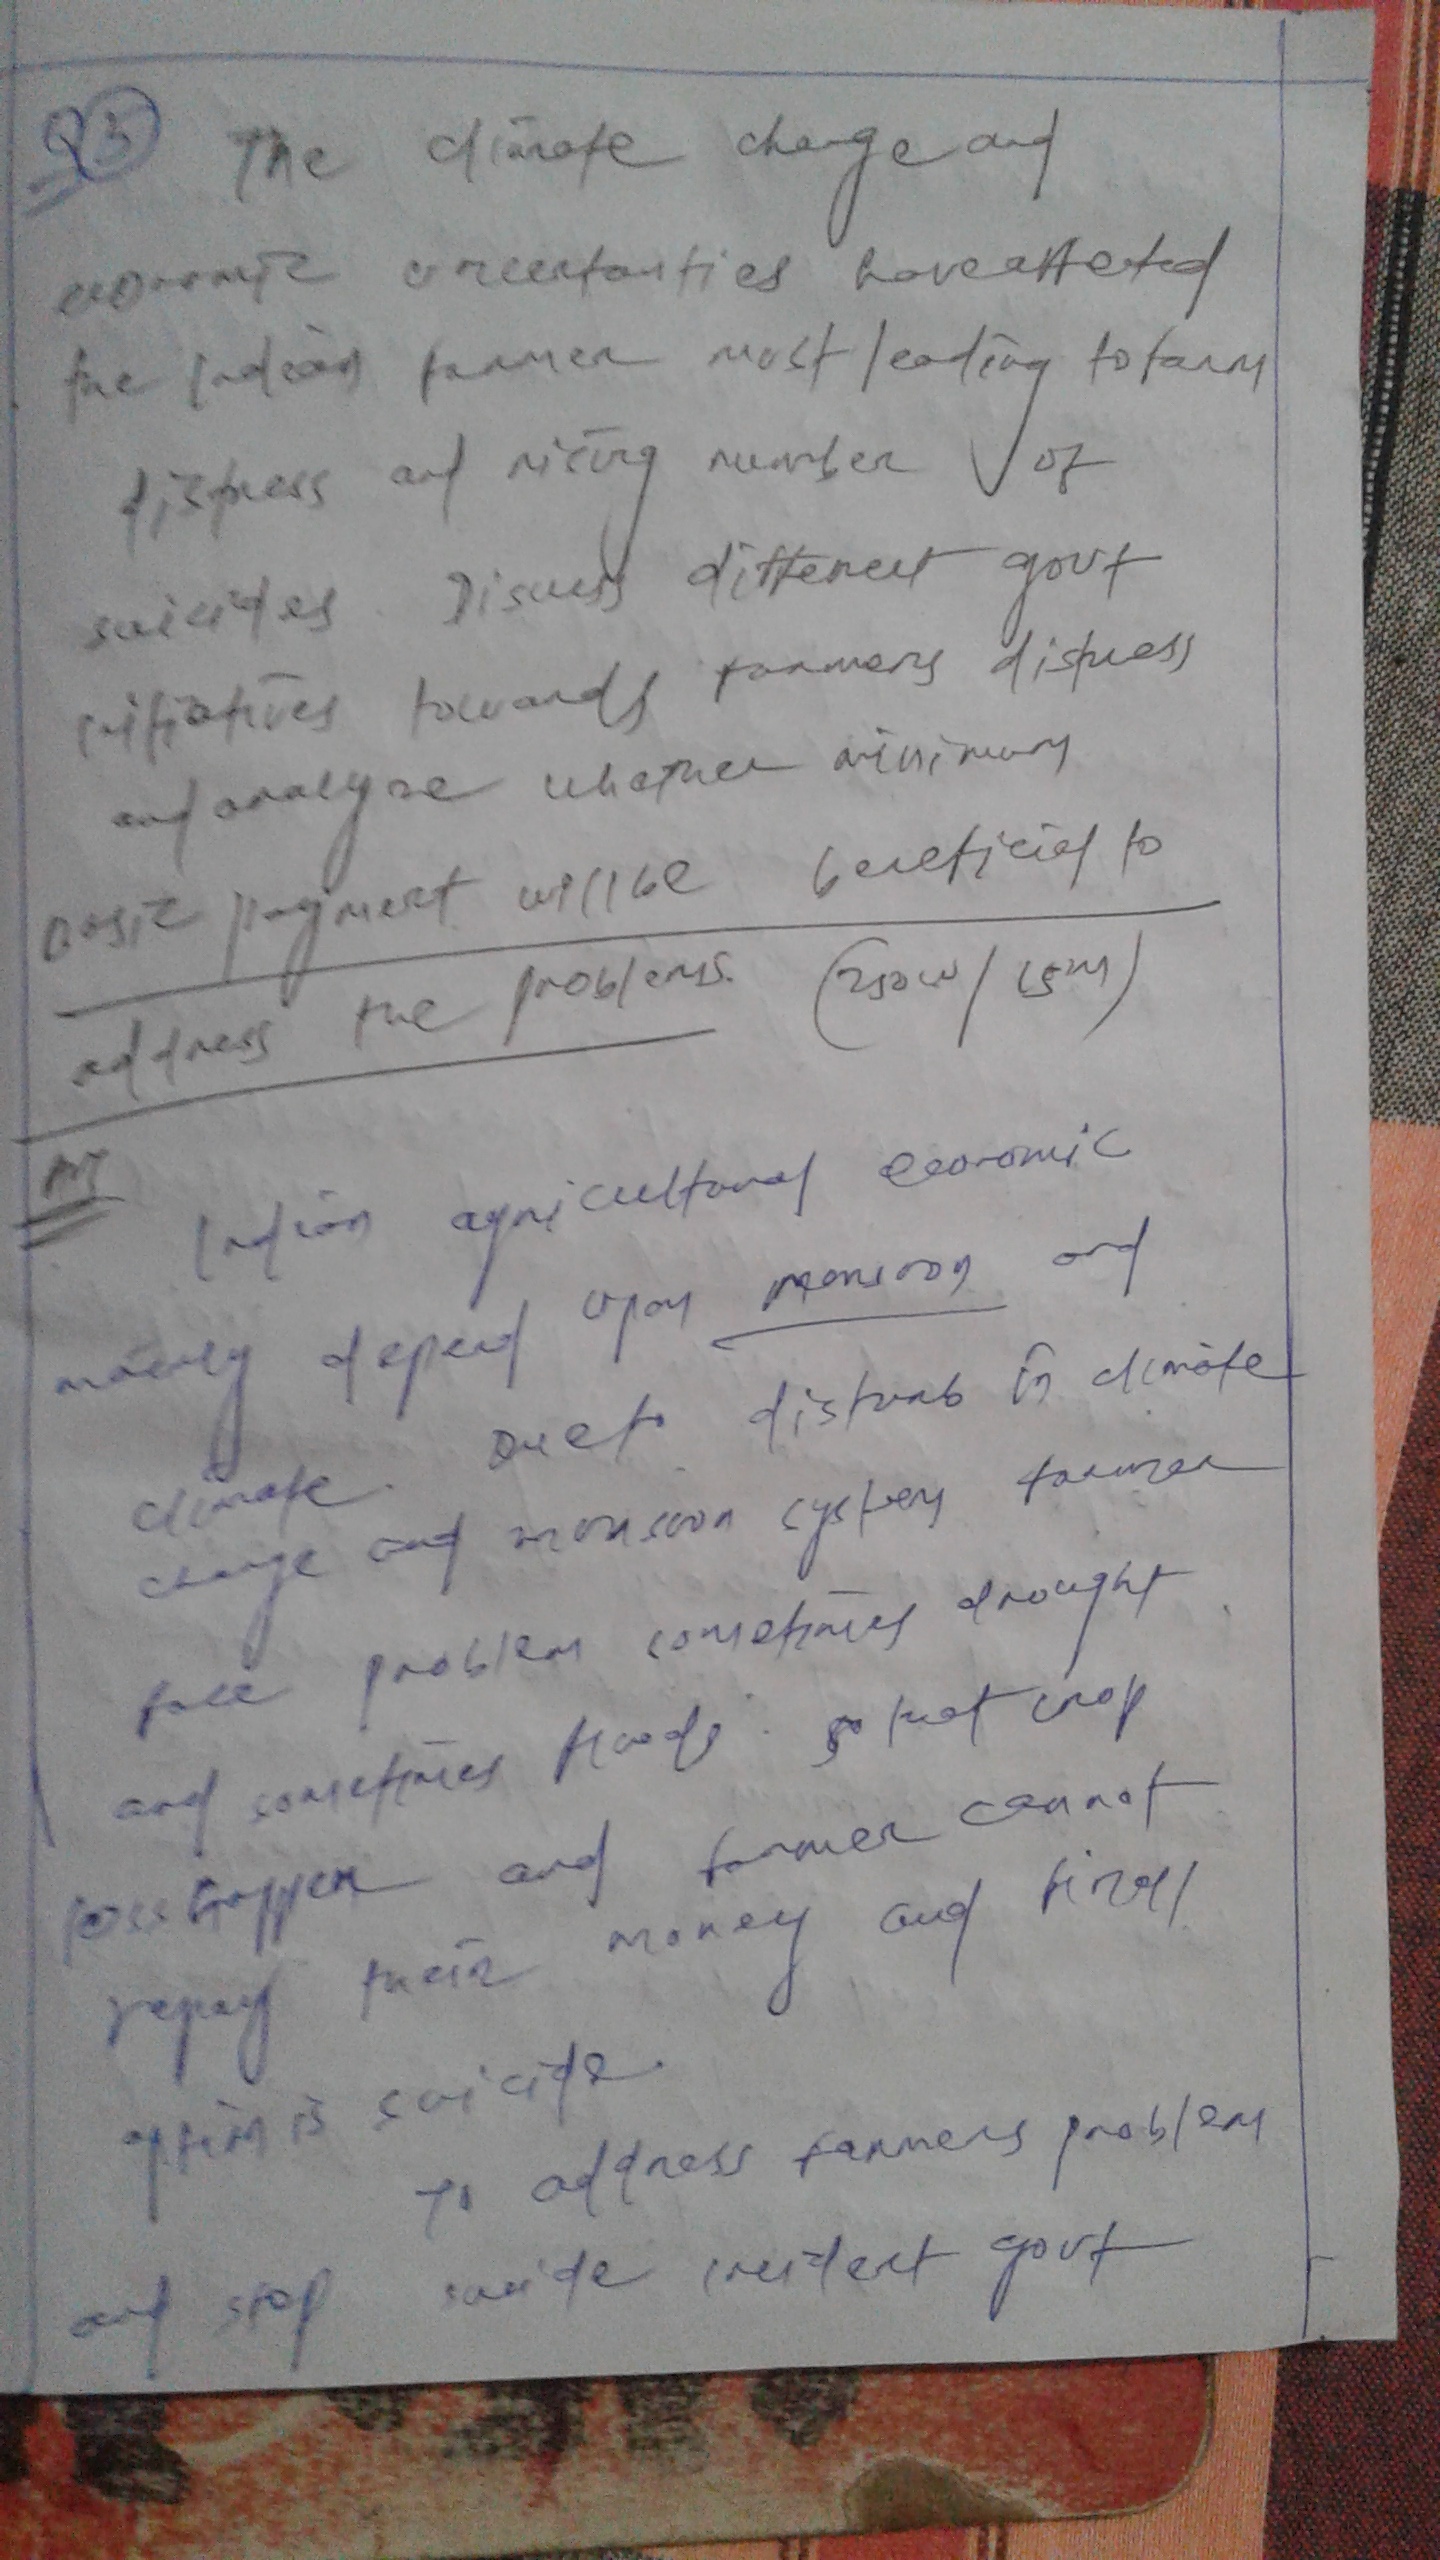 Q3 The climate change and
economic uncertanties have affected
the Indian farmer most leading to farm
distress and rising number of
suicides. Discuss different govt
initiatives towards farmers distress
and analyze whether minimum
basic payment will be beneficial to
address the problems. (250w/15m)
Ans
Indian agricultural economic
mainly depend upon monsoon and
climate. Due to disturb in climate
change and monsoon system farmer
face problem sometimes drought
and sometimes floods. so that crop
loss happen and farmer cannot
repay their money and final
option is suicide.
To address farmers problem
and stop suicide incident govt